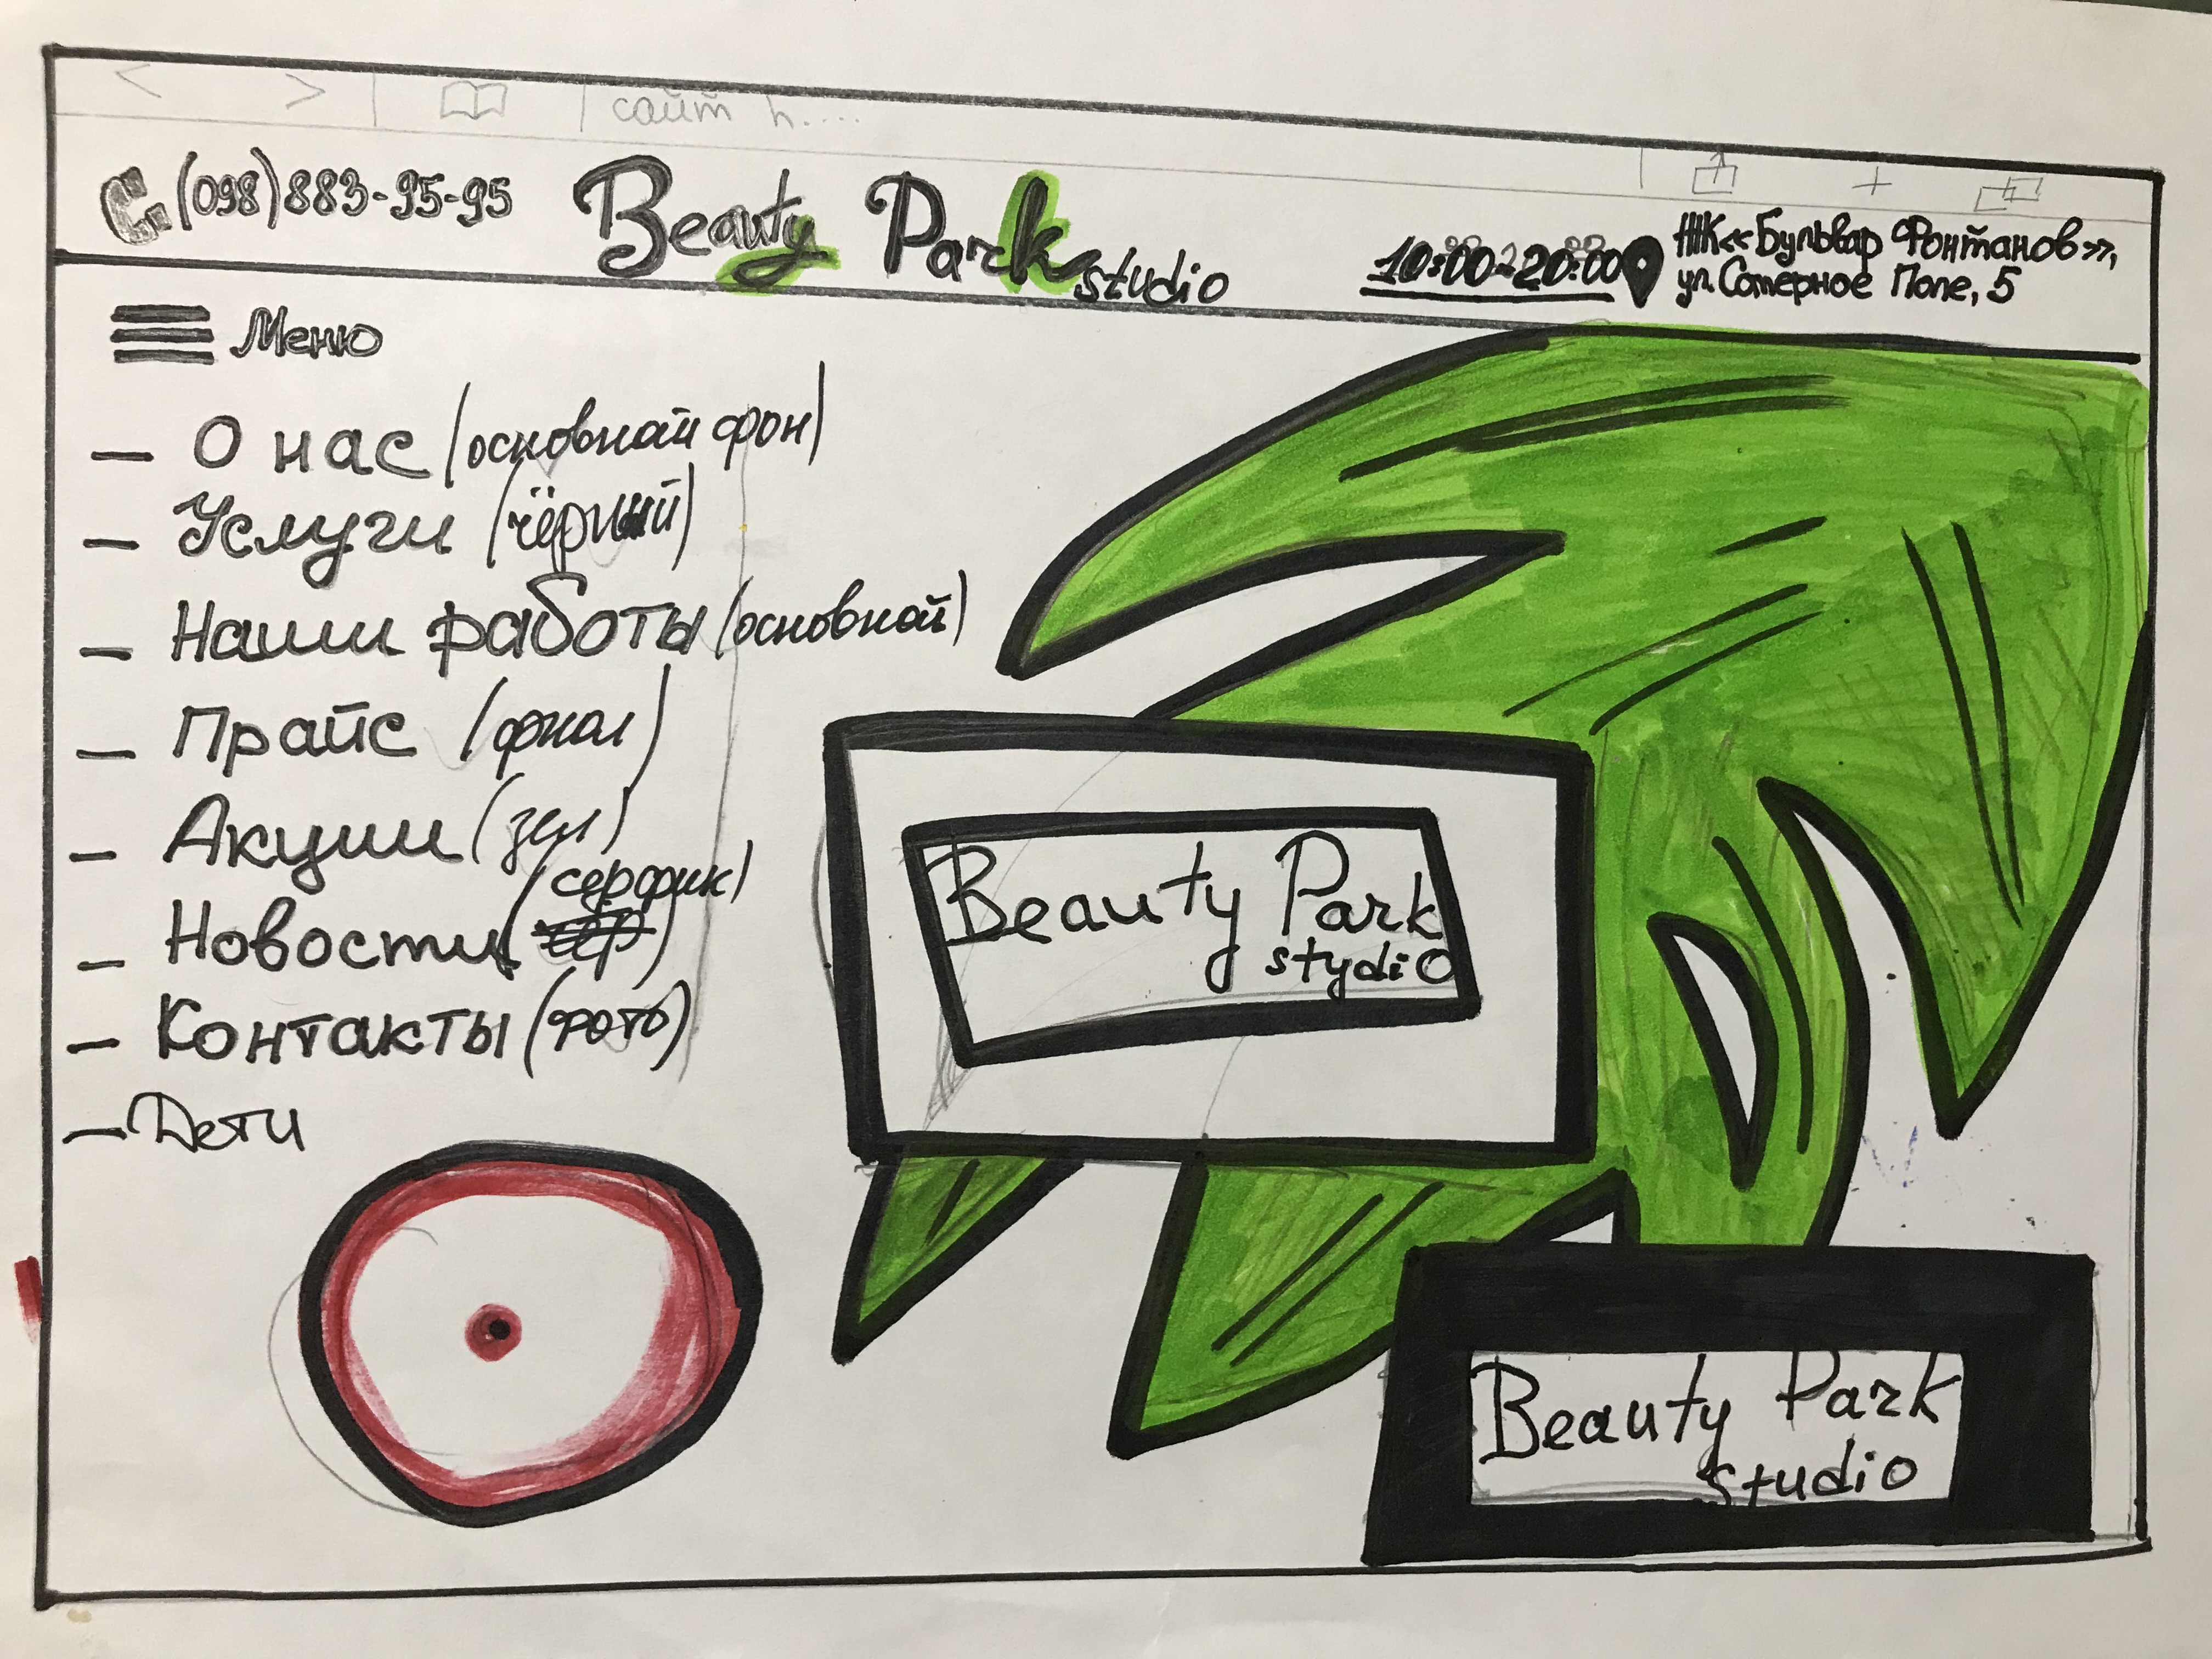 сайт h....
(098)883-95-95
Beauty Park studio
10:00-20:00
ЖК «Бульвар Фонтанов»,
ул. Сотерное Поле, 5
Меню
— О нас (основной фон)
— Услуги (чёрный)
— Наши работы (основной)
— Прайс (фиол)
— Акции (зел)
— Новости (серфик)
— Контакты (фото)
— Дети
Beauty Park
stydio
Beauty Park
studio